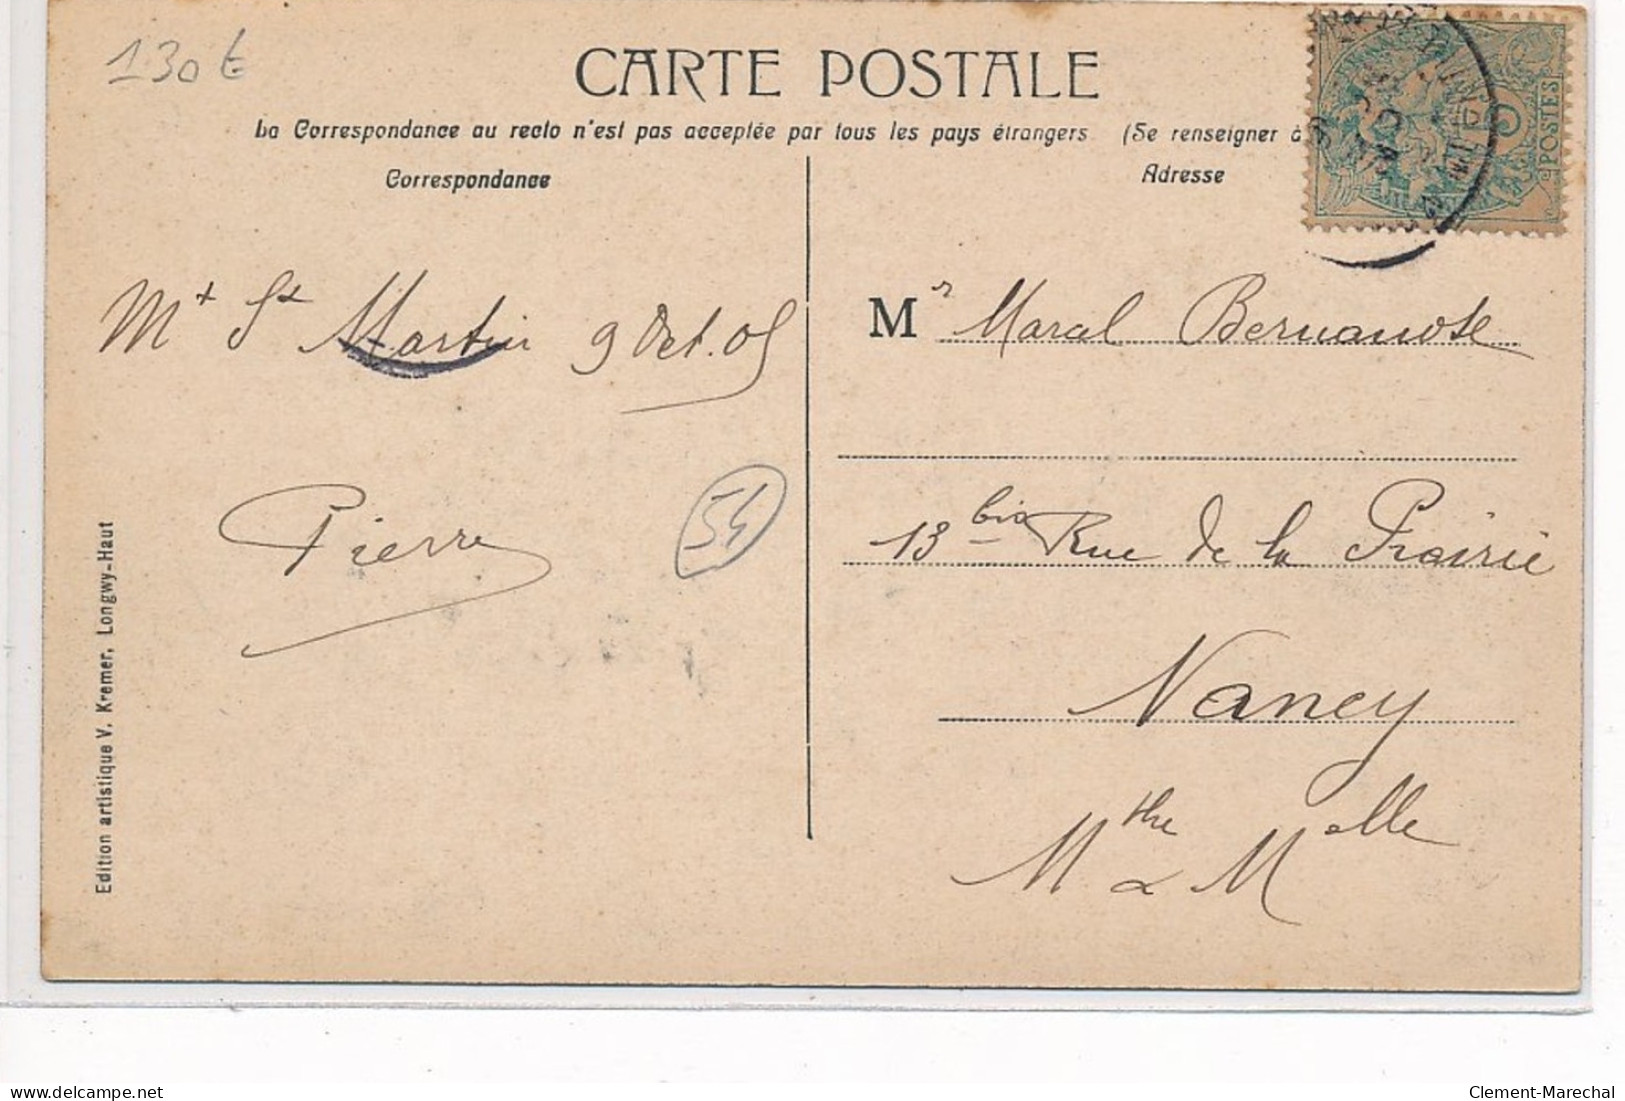 130 €
CARTE POSTALE
La Correspondance au recto n'est pas acceptée par tous les pays étrangers (Se renseigner à
Correspondance
Adresse
POSTES
Mt St Martin 9 Oct. 05
Pierre
54
Edition artistique V. Kremer, Longwy-Haut
Mr Marcal Bernanose
13 bis Rue de la Prairie
Nancy
Mthe & Melle
Delcampe.net
Clement-Marechal